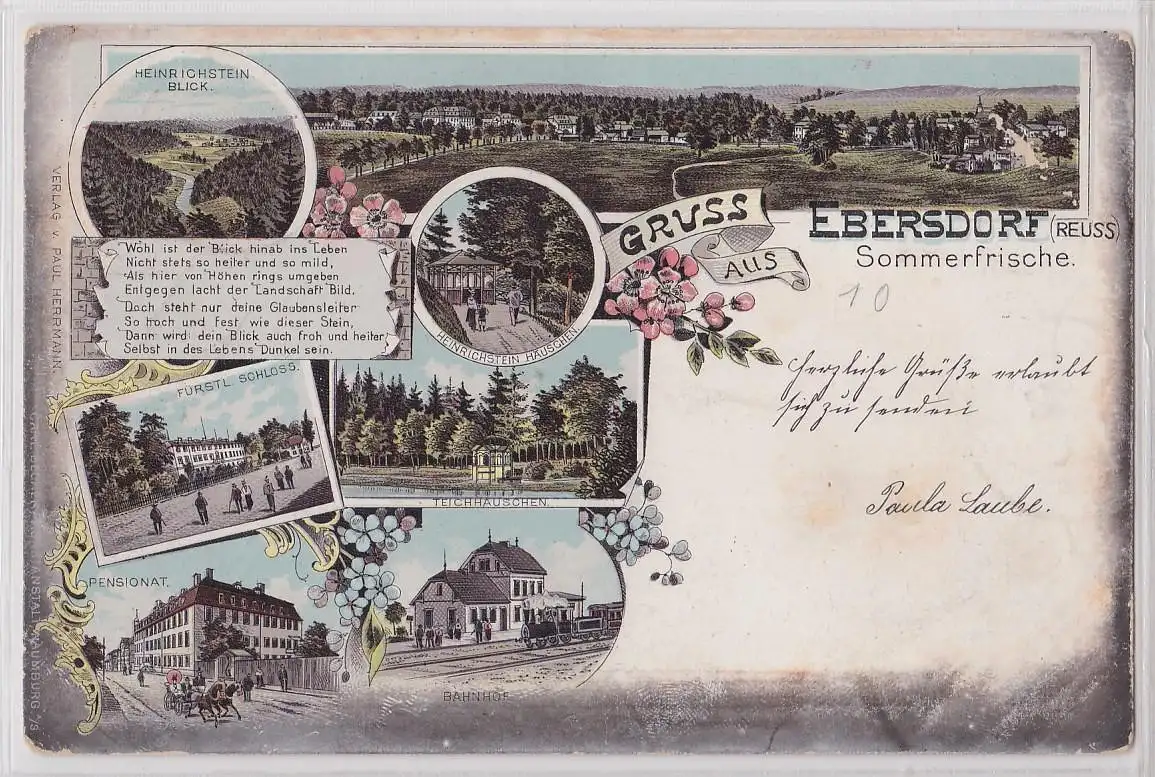 HEINRICHSTEIN
BLICK.
GRUSS
AUS
EBERSDORF (REUSS)
Sommerfrische.
Wohl ist der Blick hinab ins Leben
Nicht stets so heiter und so mild,
Als hier von Höhen rings umgeben
Entgegen lacht der Landschaft Bild.
Doch steht nur deine Glaubensleiter
So hoch und fest wie dieser Stein,
Dann wird dein Blick auch froh und heiter
Selbst in des Lebens Dunkel sein.
HEINRICHSTEIN HÄUSCHEN
10
Herzliche Grüße erlaubt
sich zu senden
Paula Laube.
FÜRSTL. SCHLOSS.
TEICHHÄUSCHEN.
PENSIONAT.
BAHNHOF
VERLAG v. PAUL HERRMANN,